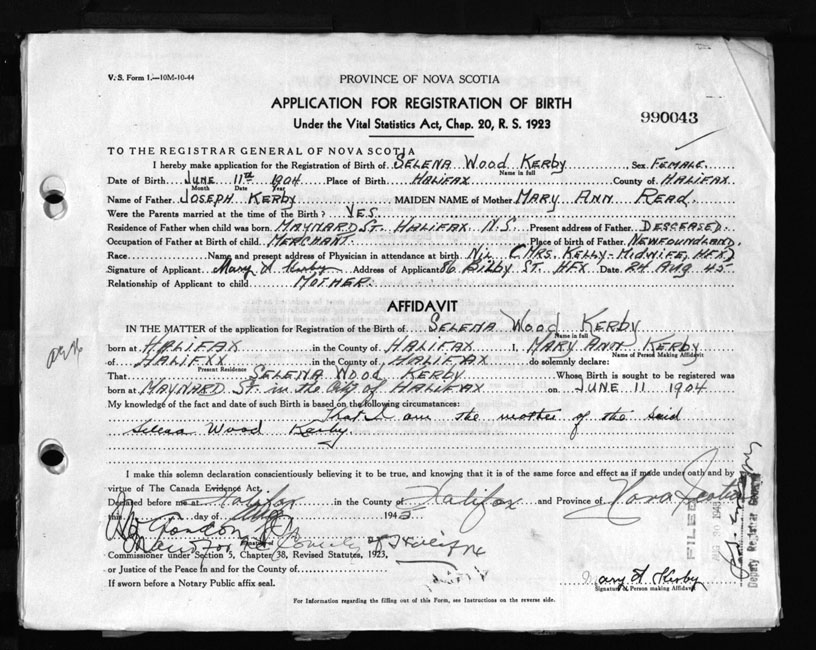 V. S. Form 1.—10M-10-44
PROVINCE OF NOVA SCOTIA
APPLICATION FOR REGISTRATION OF BIRTH
990043
Under the Vital Statistics Act, Chap. 20, R. S. 1923
TO THE REGISTRAR GENERAL OF NOVA SCOTIA
I hereby make application for the Registration of Birth of SELENA WOOD KERBY Sex FEMALE.
Name in full
Date of Birth JUNE 11th 1904 Place of Birth HALIFAX County of HALIFAX
Month Date Year
Name of Father JOSEPH KERBY MAIDEN NAME of Mother MARY ANN READ.
Were the Parents married at the time of the Birth? YES.
Residence of Father when child was born MAYNARD ST. HALIFAX. N.S. Present address of Father DESCEASED.
Occupation of Father at Birth of child MERCHANT. Place of birth of Father NEWFOUNDLAND.
Race Name and present address of Physician in attendance at birth NIL (MRS. KELLY-MIDWIFE, HFX)
Signature of Applicant Mary A Kerby Address of Applicant 86 BILBY ST. HFX Date 24 AUG 45
Relationship of Applicant to child MOTHER.
AFFIDAVIT
IN THE MATTER of the application for Registration of the Birth of SELENA WOOD KERBY
Name in full
born at HALIFAX in the County of HALIFAX I, MARY ANN KERBY
Name of Person Making Affidavit
of HALIFXX in the County of HALIFAX do solemnly declare:
Present Residence
That SELENA WOOD KERBY Whose Birth is sought to be registered was
born at MAYNARD ST. in the City of HALIFAX on JUNE 11 1904
My knowledge of the fact and date of such Birth is based on the following circumstances:
That I am the mother of the said
Selena Wood Kerby.
I make this solemn declaration conscientiously believing it to be true, and knowing that it is of the same force and effect as if made under oath and by
virtue of The Canada Evidence Act.
Declared before me at Halifax in the County of Halifax and Province of Nova Scotia
this day of 194
Commissioner under Section 5, Chapter 38, Revised Statutes, 1923,
or Justice of the Peace in and for the County of
If sworn before a Notary Public affix seal.
Mary A Kerby
Signature of Person making Affidavit
For Information regarding the filling out of this Form, see Instructions on the reverse side.
FILED
Deputy Registrar General